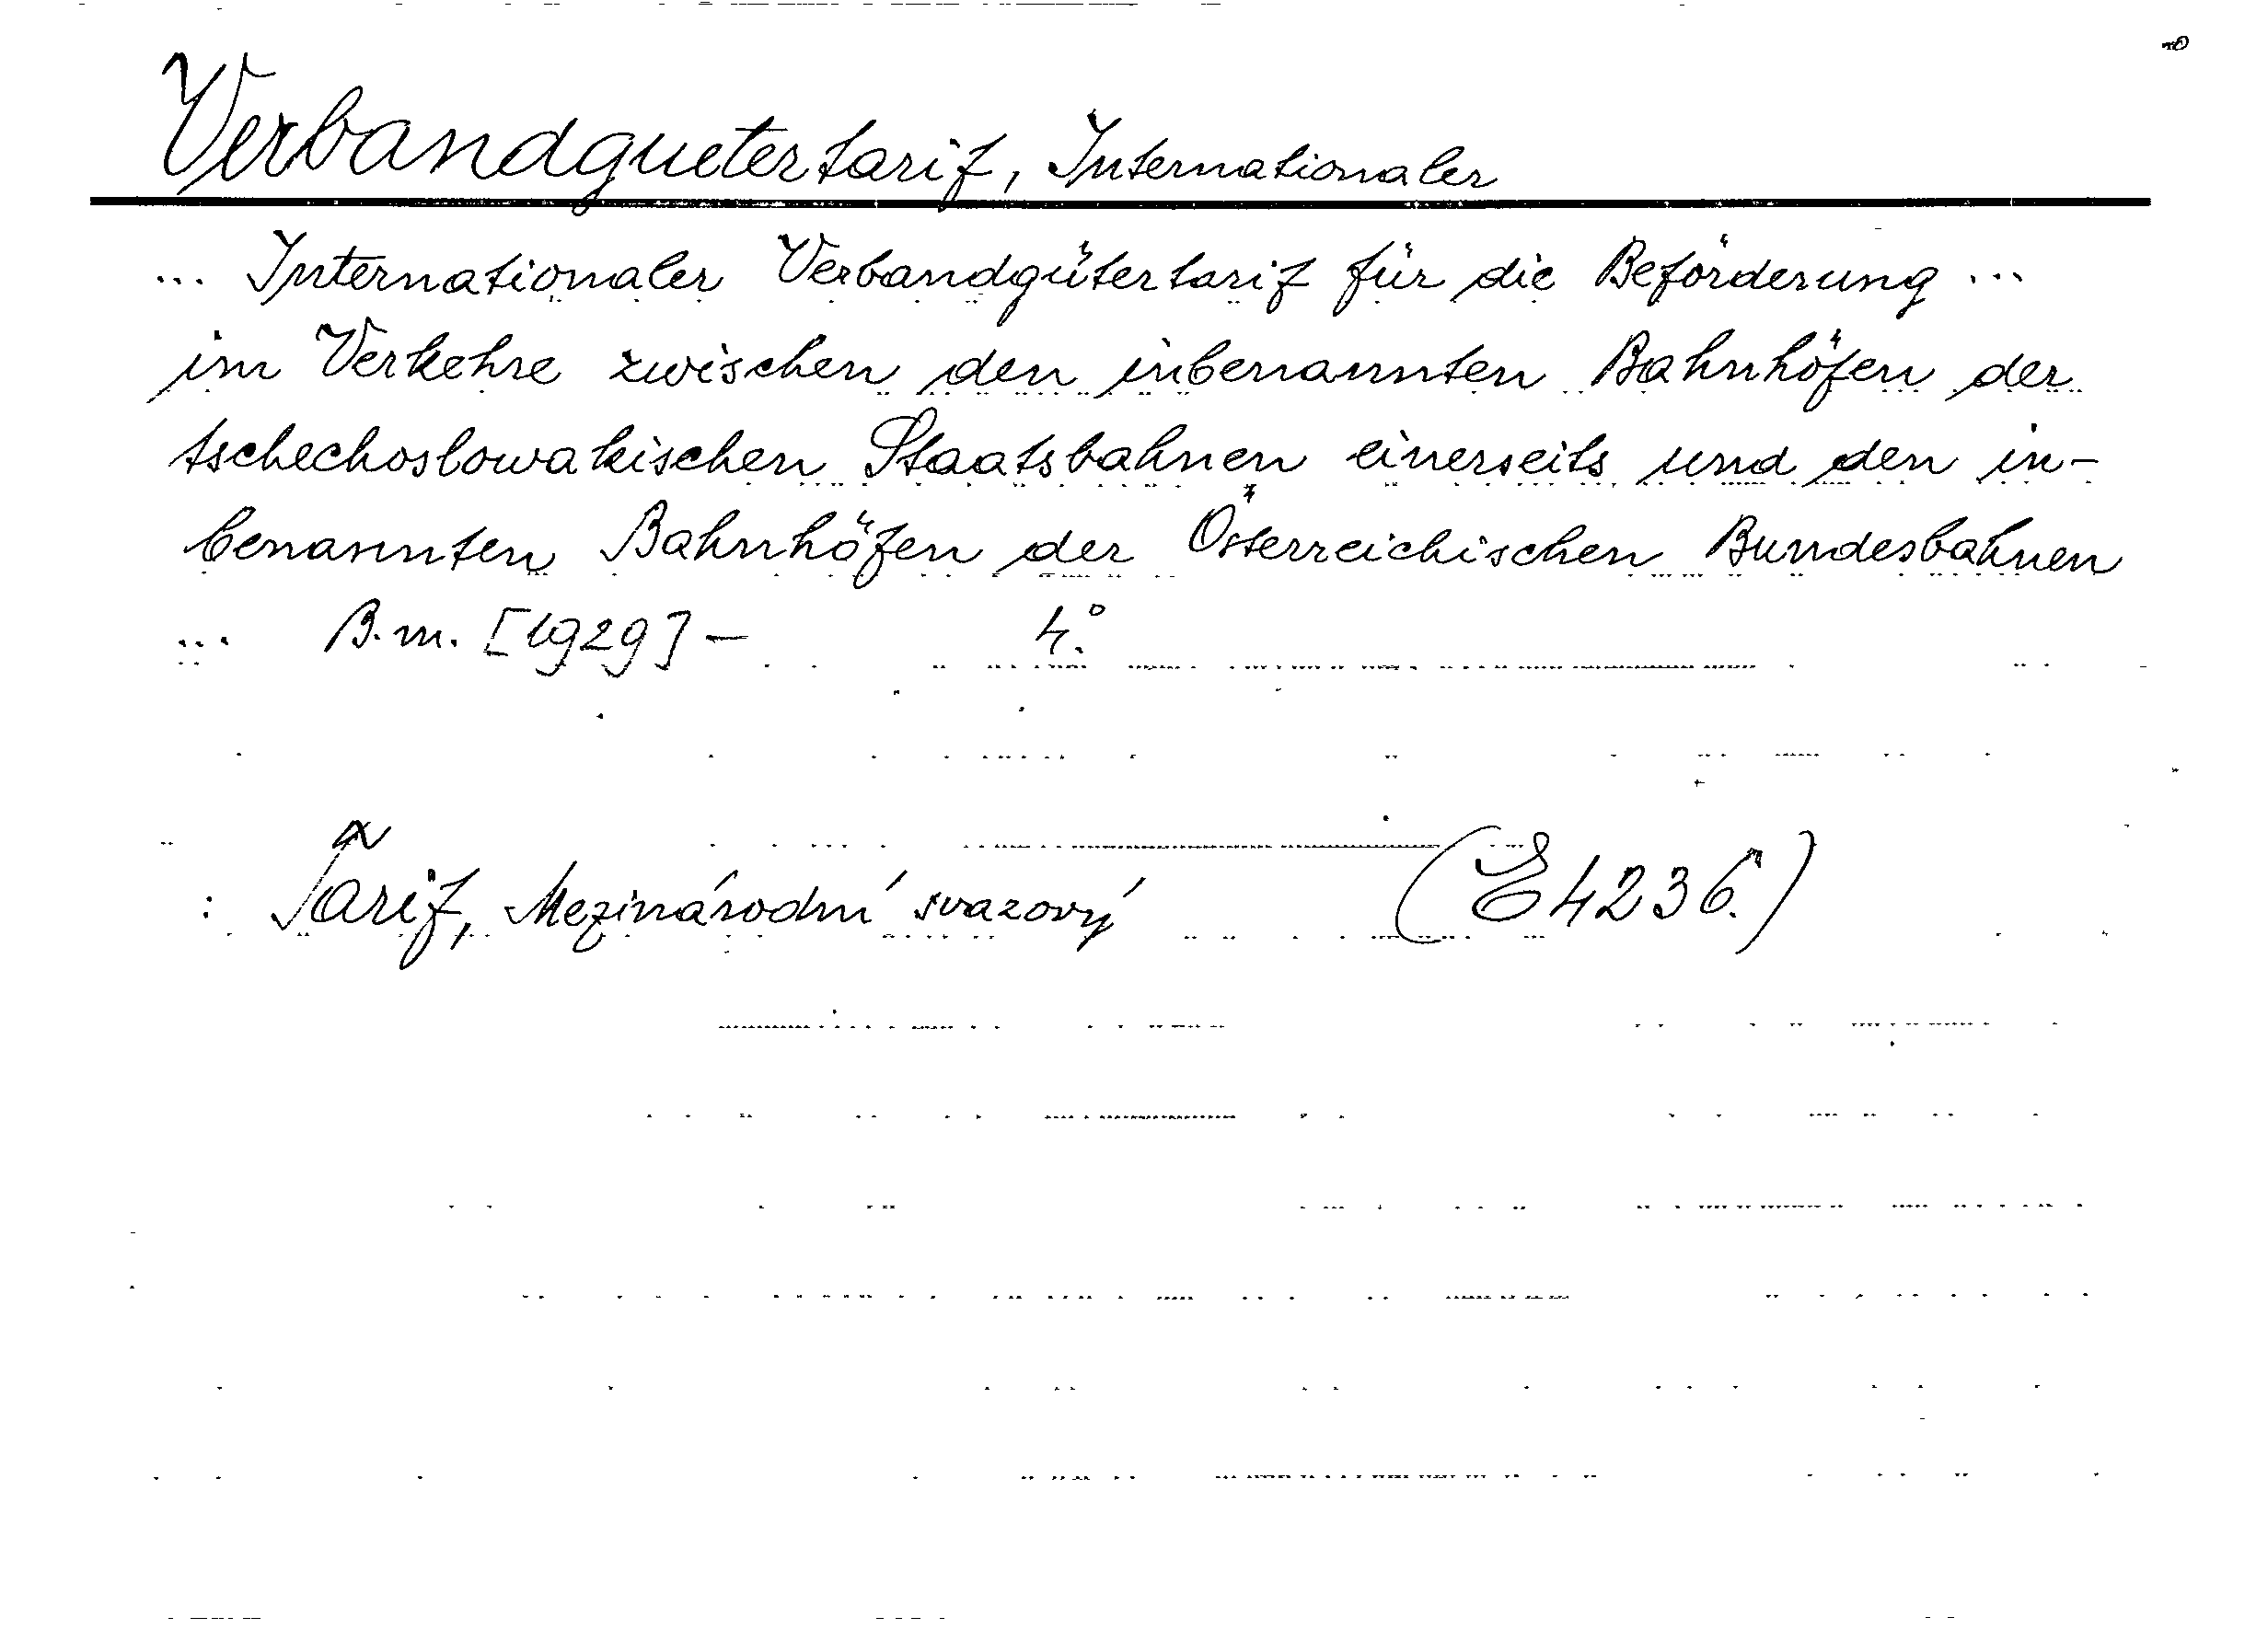 Verbandguetertarif, Internationaler
... Internationaler Verbandgütertarif für die Beförderung ...
im Verkehre zwischen den inbenannten Bahnhöfen der
tschechoslowakischen Staatsbahnen einerseits und den in-
benannten Bahnhöfen der Österreichischen Bundesbahnen
... B.m. [1929] — 4.°
: Tarif, Mezinárodní svazový (E 4236.)